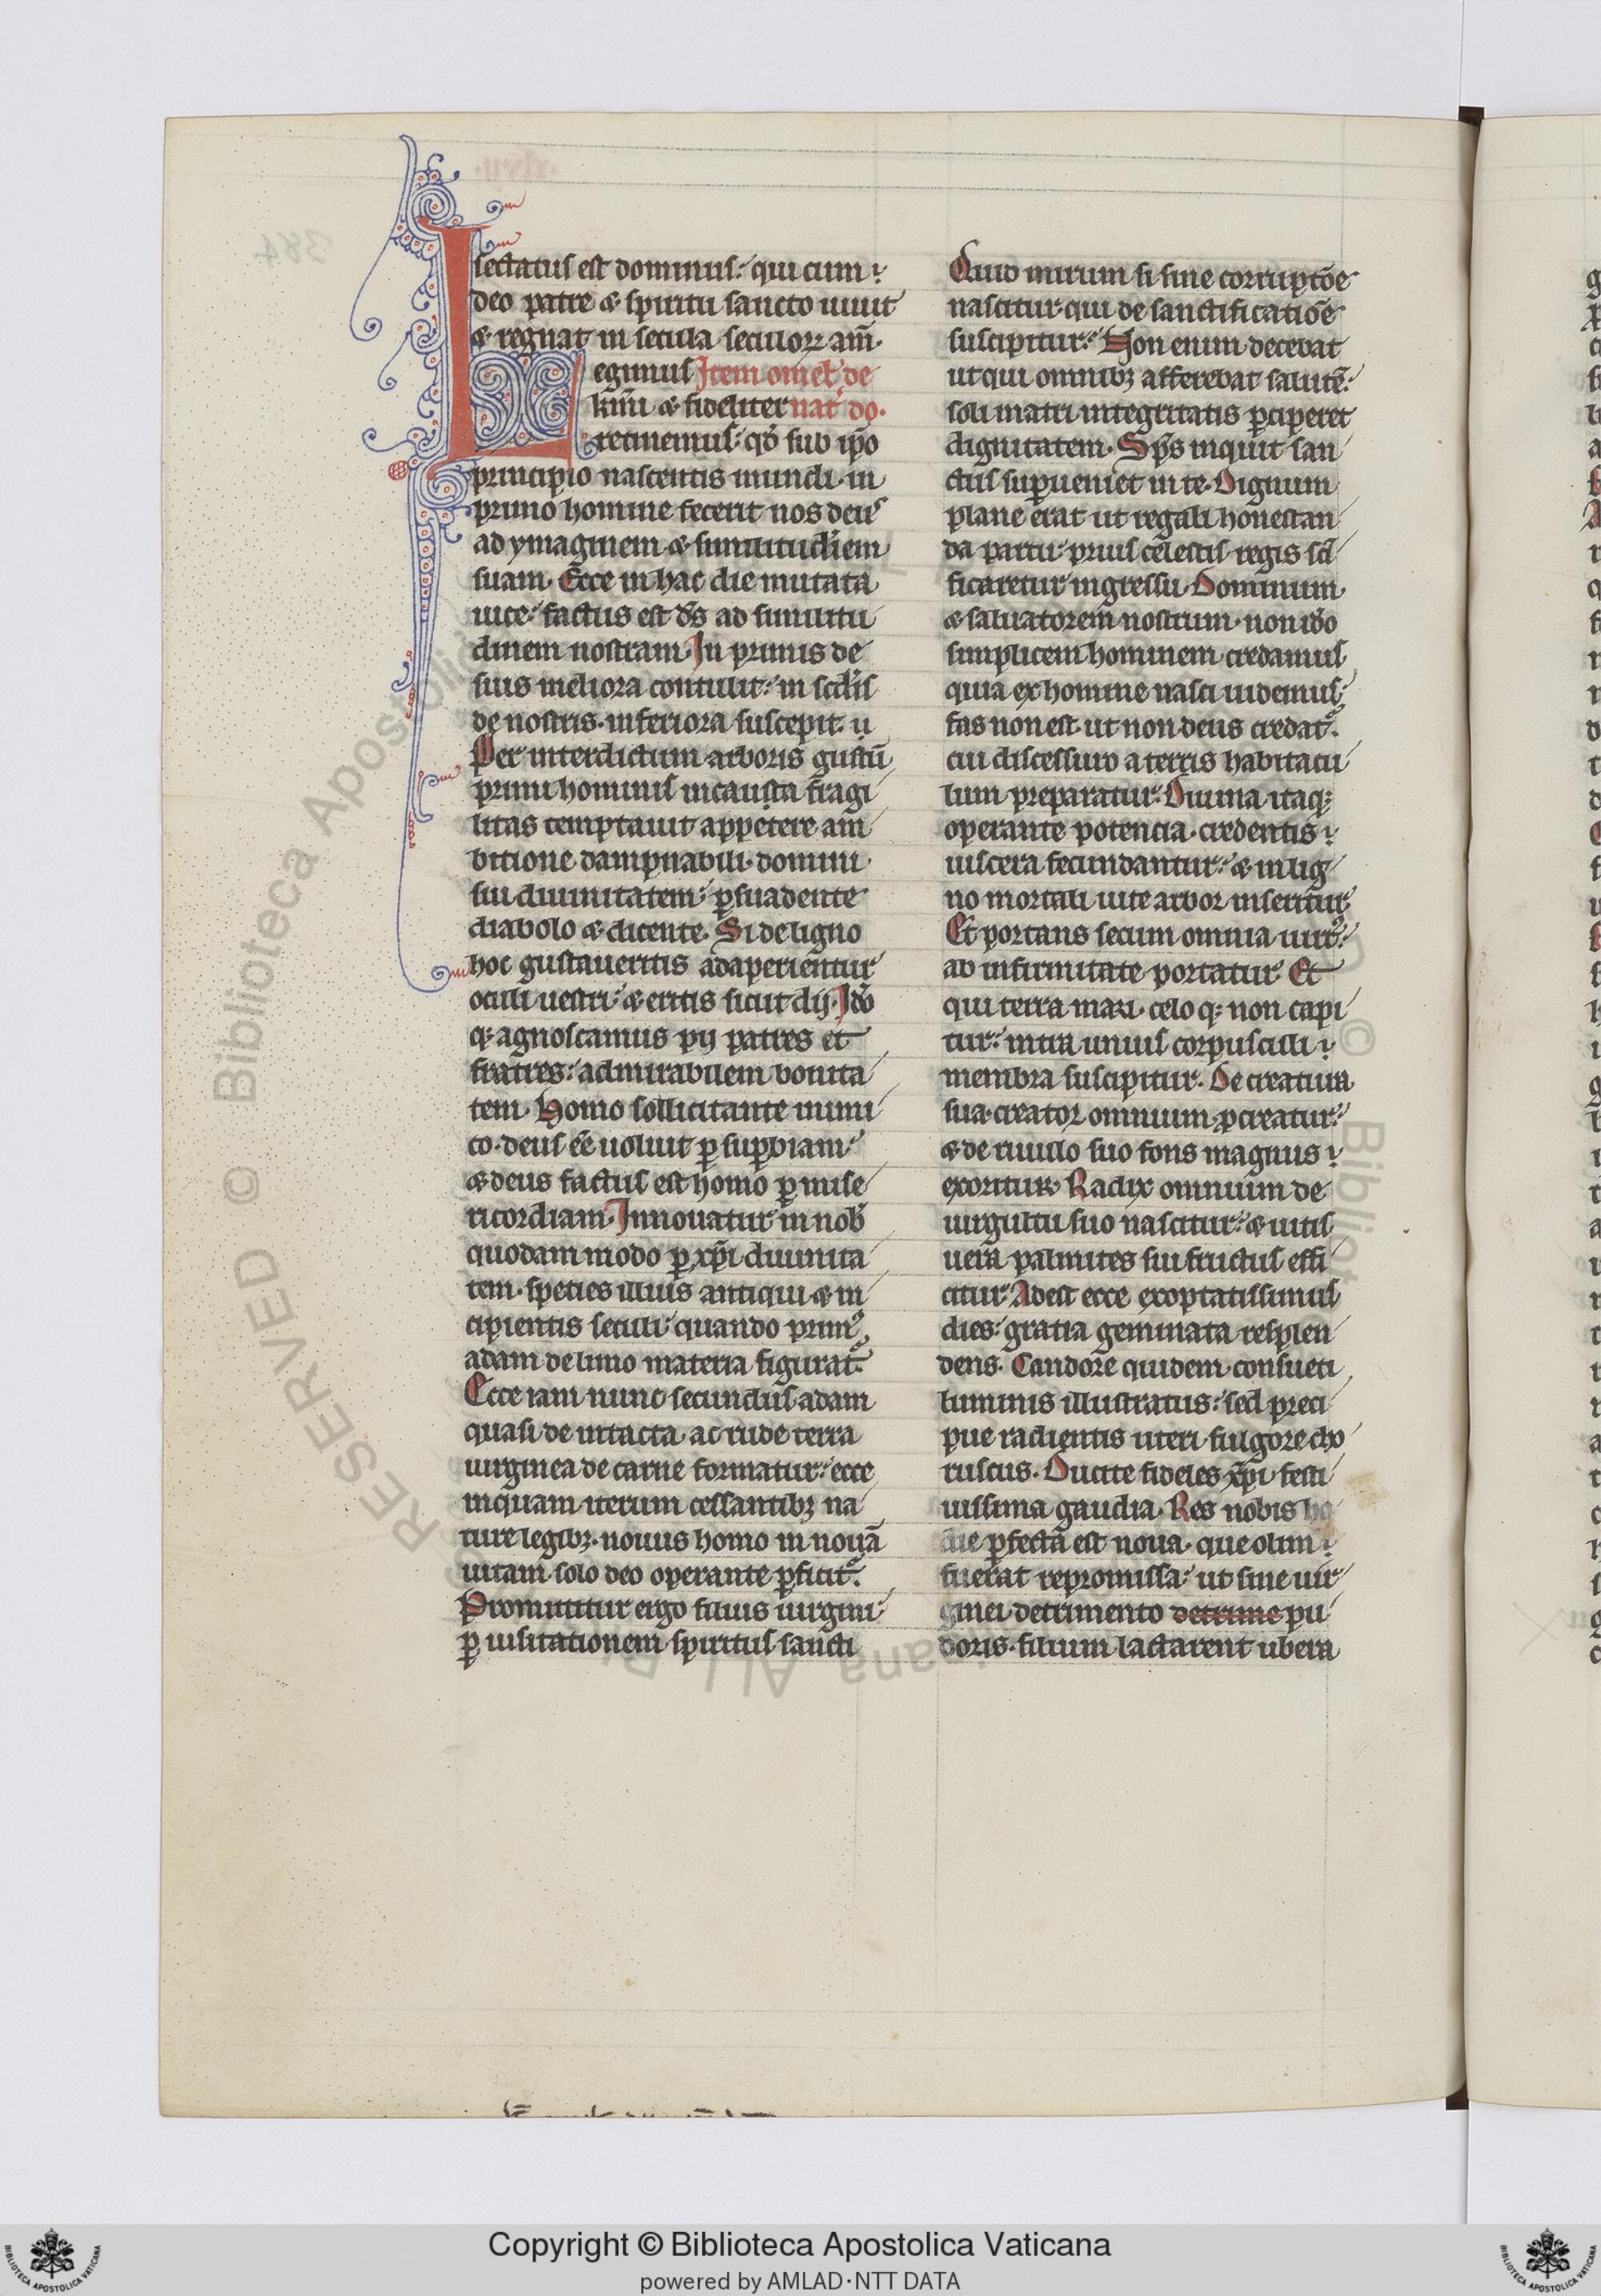 sectatus est dominus: qui cum
deo patre ⁊ spiritu sancto uiuit
⁊ regnat in secula seculoꝝ am̄.
Legimus Item omel' de
kmī ⁊ fideliter nat' do.
retinemus: qđ sub ip̄o
principio nascentis mundi. in
primo homine fecerit nos deus
ad ymaginem ⁊ similitudinem
suam. Ecce in hac die mutata
uice: factus est ds̄ ad similitu
dinem nostram. In primis de
suis meliora contulit: in scd̄is
de nostris inferiora suscepit.
Per interdictum arboris gustū
primi hominis incauta fragi
litas temptauit appetere am
bitione dampnabili. domini
sui diuinitatem: ꝑsuadente
diabolo ⁊ dicente. Si de ligno
hoc gustaueritis adaperientur
oculi uestri: ⁊ eritis sicut dij. Idō
qꝫ agnoscamus pij patres et
fratres: admirabilem bonita
tem. Homo sollicitante inimi
co. deus eē uoluit ꝑ supbiam:
⁊ deus factus est homo ꝑ mise
ricordiam. Innouatur in nob̄
quodam modo ꝑ xp̄i diuinita
tem. species illius antiqui ⁊ in
cipientis seculi: quando primꝰ
adam de limo materia figurat᷑.
Ecce iam nunc secundus adam
quasi de intacta ac rude terra
uirginea de carne formatur: ecce
inquam iterum cessantibꝫ na
ture legibꝫ. nouus homo in nouā
uitam. solo deo operante ꝑficit᷑.
Promittitur ergo filius uirgini
ꝑ uisitationem spiritus sancti
Quid mirum si sine corruptōe
nascitur. qui de sanctificatiōe
suscipitur: Non enim decebat
ut qui omnibꝫ afferebat salutē:
soli matri integritatis ꝑciperet
dignitatem. Sp̄s inquit san
ctus supueniet in te. Dignum
plane erat ut regali honestan
da partu: prius celestis regis sc̄i
ficaretur ingressu. Dominum
⁊ saluatorem nostrum. non idō
simplicem hominem credamus
quia ex homine nasci uidemus:
fas non est. ut non deus credat᷑.
cui discessuro a terris habitacu
lum preparatur. Diuina itaqꝫ
operante potencia. credentis
uiscera fecundantur: ⁊ in lig
no mortali uite arbor inseritur
Et portans secum omnia uirt᷑:
ab infirmitate portatur. Et
qui terra mari. celo qꝫ non capi
tur: intra unius corpusculi
membra suscipitur. De creatura
sua. creator omnium ꝓcreatur:
⁊ de riuulo suo fons magnus
exoritur. Radix omnium de
uirgultu suo nascitur: ⁊ uitis
uera palmites sui fructus effi
citur. Adest ecce exoptatissimus
dies: gratia geminata resplen
dens. Candore quidem consueti
luminis illustratus: sed preci
pue radientis uteri fulgore cho
ruscus. Ducite fideles xp̄i festi
uissima gaudia. Res nobis ho
die ꝑfecta est noua. que olim
fuerat repromissa: ut sine uir
ginei detrimento detrime pu
doris. filium lactarent ubera
Copyright © Biblioteca Apostolica Vaticana
powered by AMLAD·NTT DATA